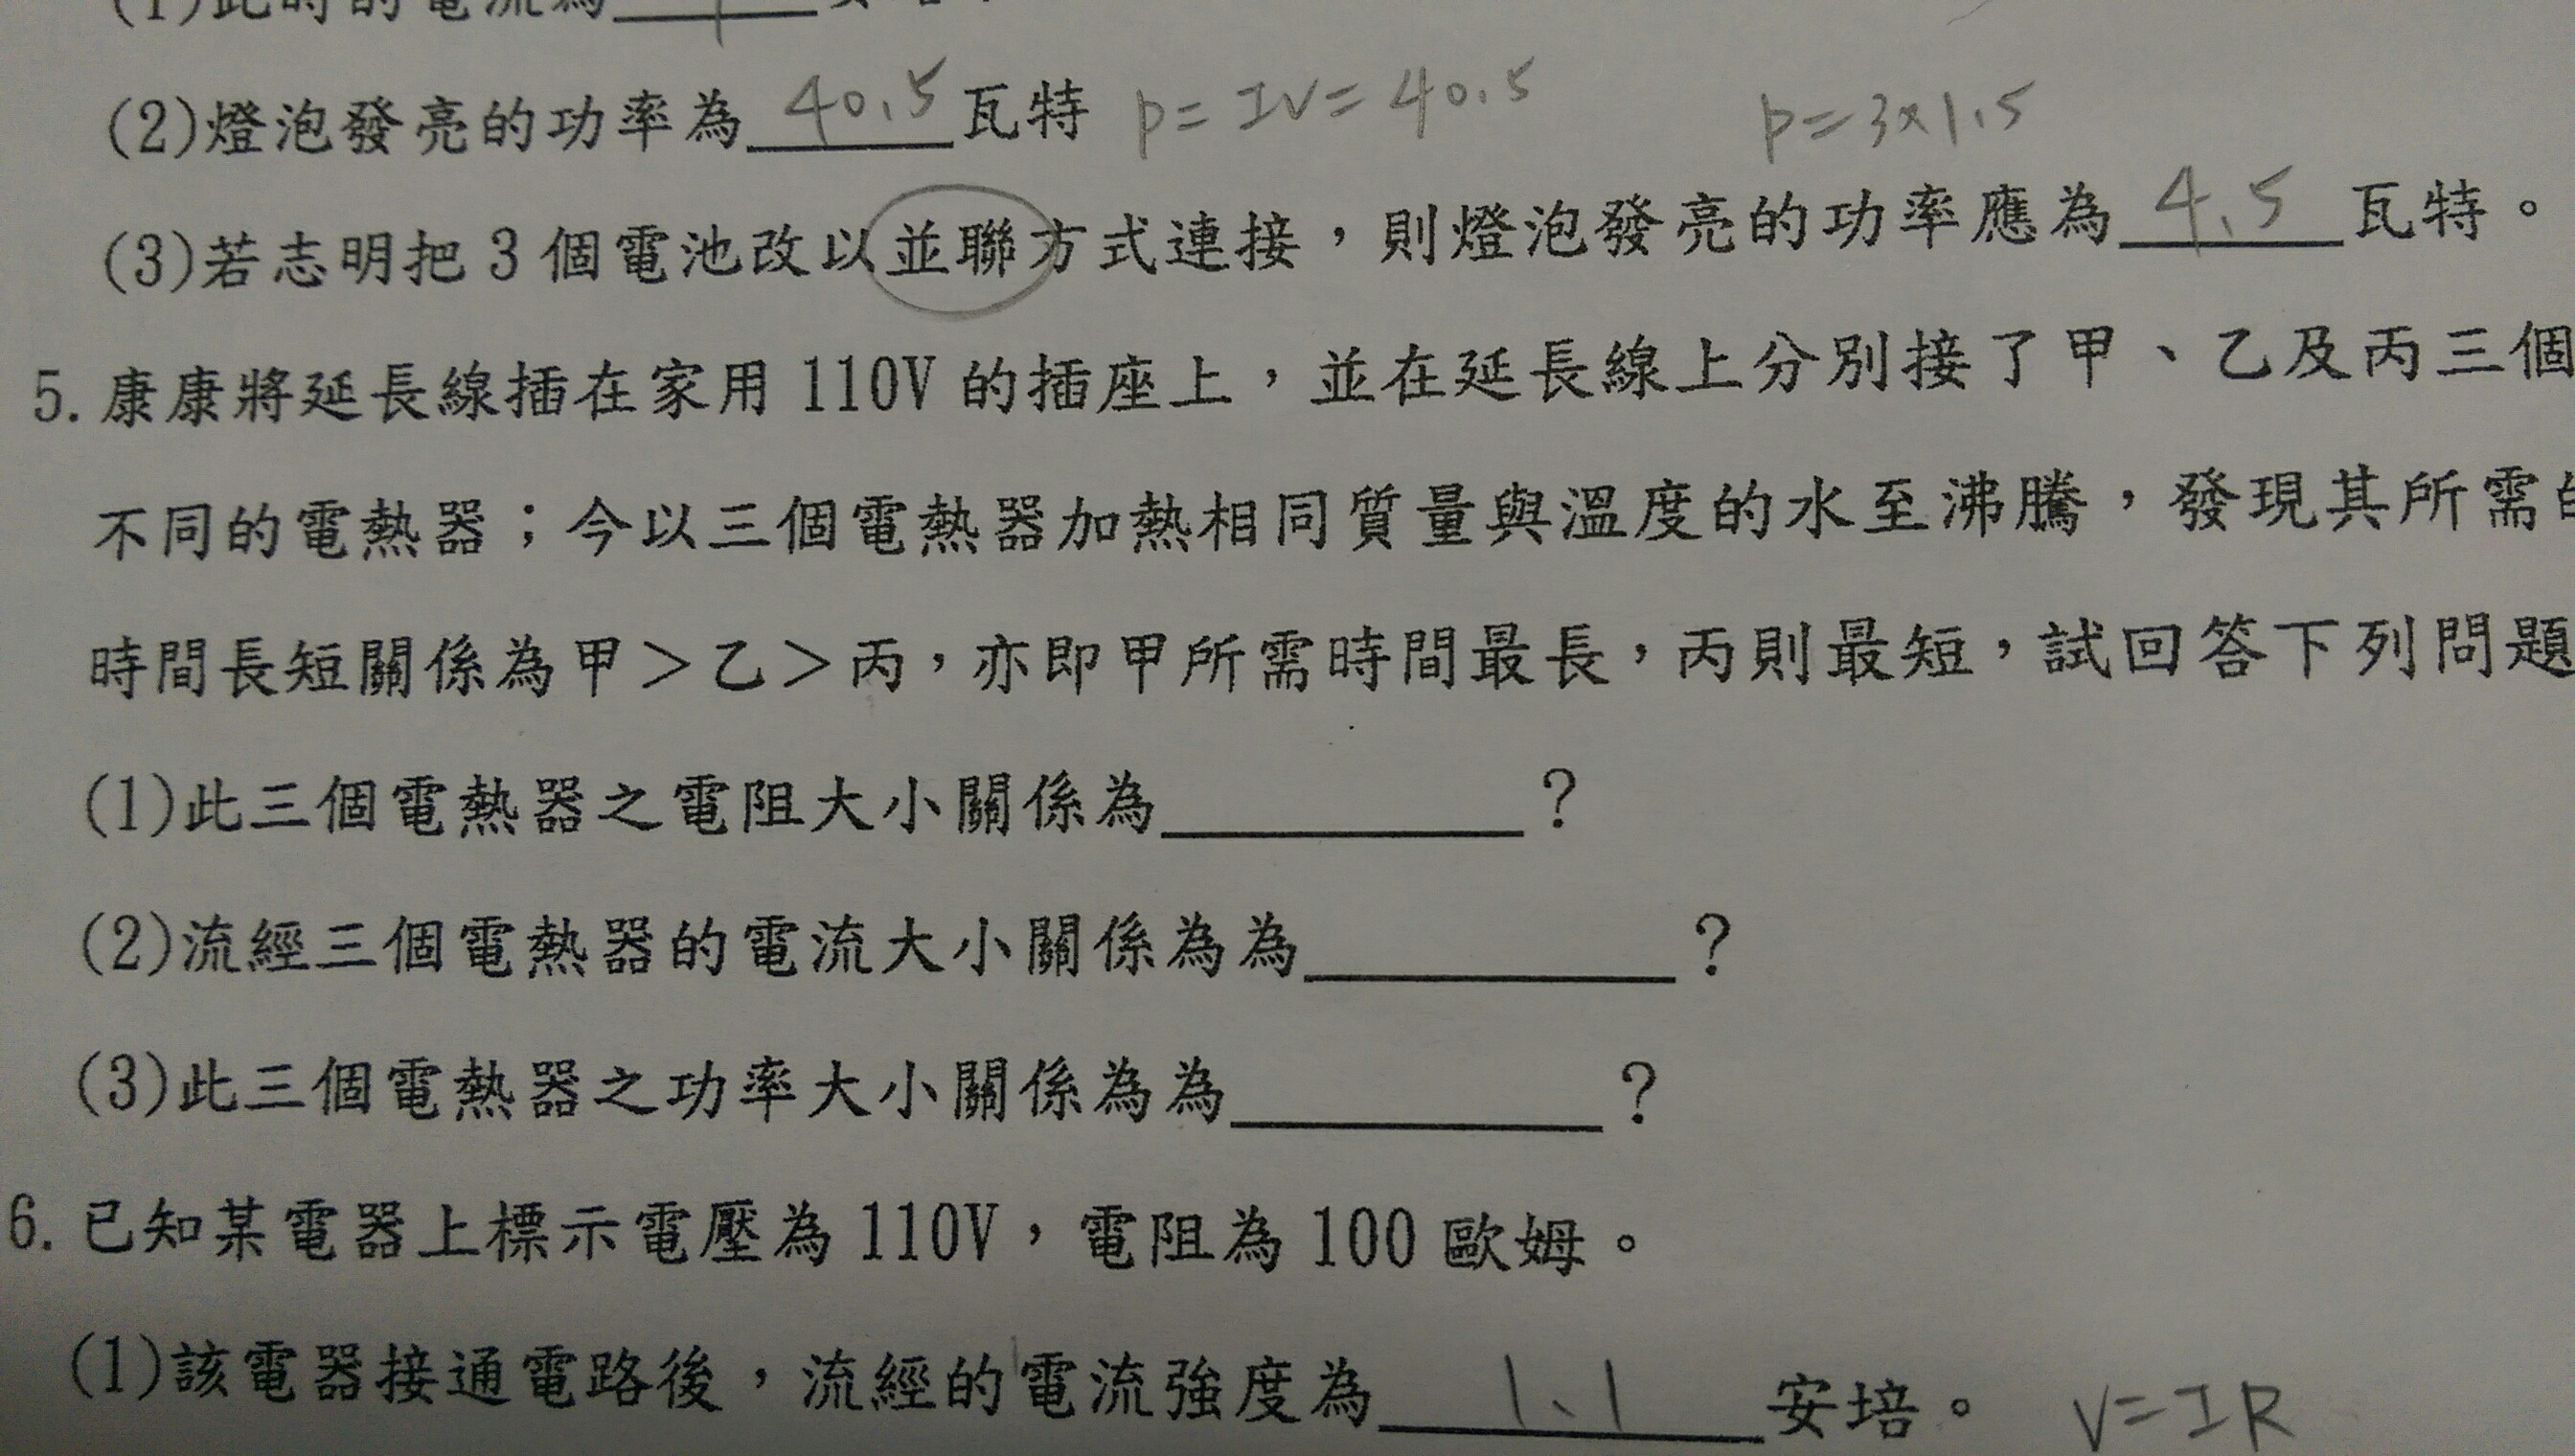 (1)此時的電流為 安培
(2)燈泡發亮的功率為 40.5 瓦特 P=IV=40.5 P=3×1.5
(3)若志明把 3 個電池改以並聯方式連接，則燈泡發亮的功率應為 4.5 瓦特。
5. 康康將延長線插在家用 110V 的插座上，並在延長線上分別接了甲、乙及丙三個
不同的電熱器；今以三個電熱器加熱相同質量與溫度的水至沸騰，發現其所需的
時間長短關係為甲＞乙＞丙，亦即甲所需時間最長，丙則最短，試回答下列問題
(1)此三個電熱器之電阻大小關係為＿＿＿＿＿？
(2)流經三個電熱器的電流大小關係為為＿＿＿＿＿？
(3)此三個電熱器之功率大小關係為為＿＿＿＿＿？
6. 已知某電器上標示電壓為 110V，電阻為 100 歐姆。
(1)該電器接通電路後，流經的電流強度為 1.1 安培。 V=IR